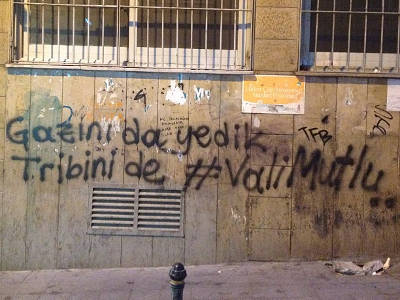 Gazini da yedik
TFB
Tribini de #Vali Mutlu